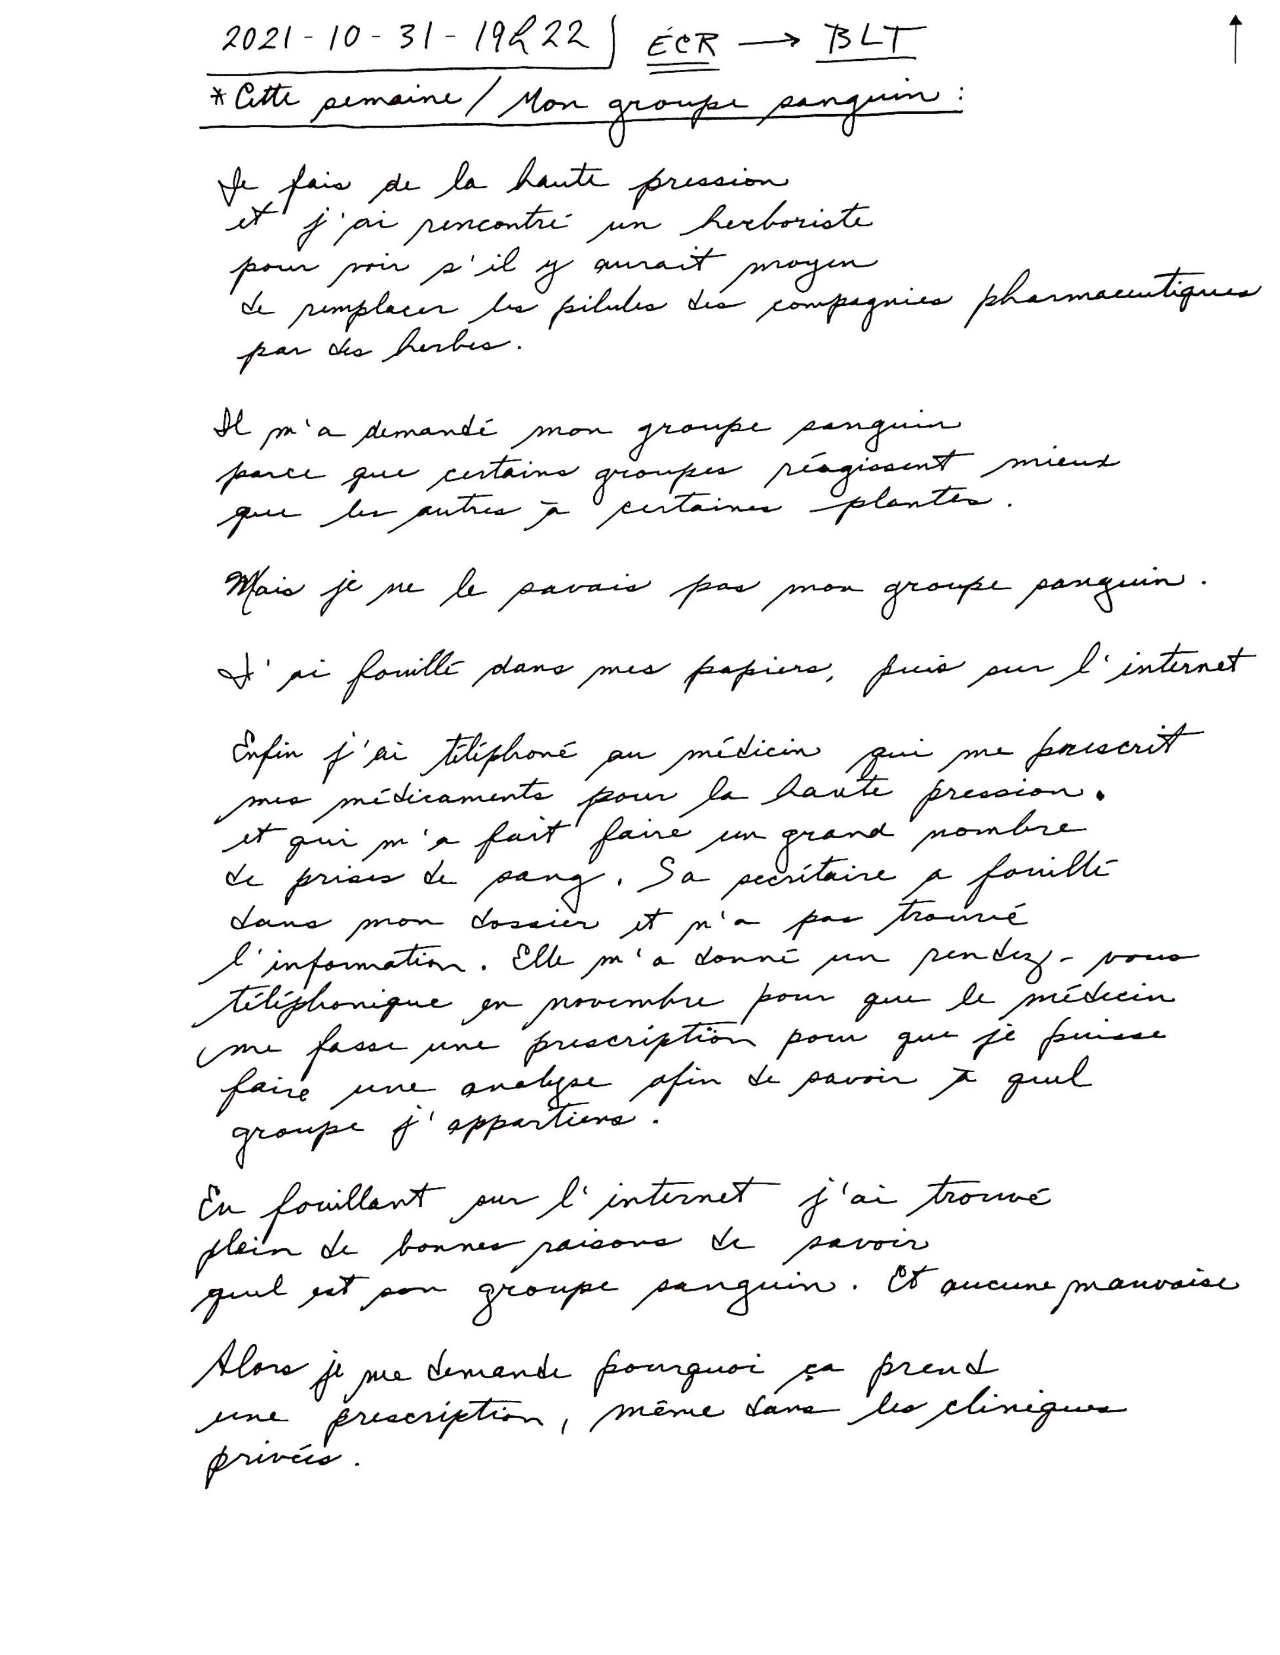 2021-10-31-19h22 ÉCR → BLT
* Cette semaine / Mon groupe sanguin :
Je fais de la haute pression
et j'ai rencontré un herboriste
pour voir s'il y aurait moyen
de remplacer les pilules des compagnies pharmaceutiques
par des herbes.
Il m'a demandé mon groupe sanguin
parce que certains groupes réagissent mieux
que les autres à certaines plantes.
Mais je ne le savais pas mon groupe sanguin.
J'ai fouillé dans mes papiers, puis sur l'internet
Enfin j'ai téléphoné au médicin qui me prescrit
mes médicaments pour la haute pression.
et qui m'a fait faire un grand nombre
de prises de sang. Sa secrétaire a fouillé
dans mon dossier et n'a pas trouvé
l'information. Elle m'a donné un rendez-vous
téléphonique en novembre pour que le médecin
me fasse une prescription pour que je puisse
faire une analyse afin de savoir à quel
groupe j'appartiens.
En fouillant sur l'internet j'ai trouvé
plein de bonnes raisons de savoir
quel est son groupe sanguin. Et aucune mauvaise
Alors je me demande pourquoi ça prend
une prescription, même dans les cliniques
privées.